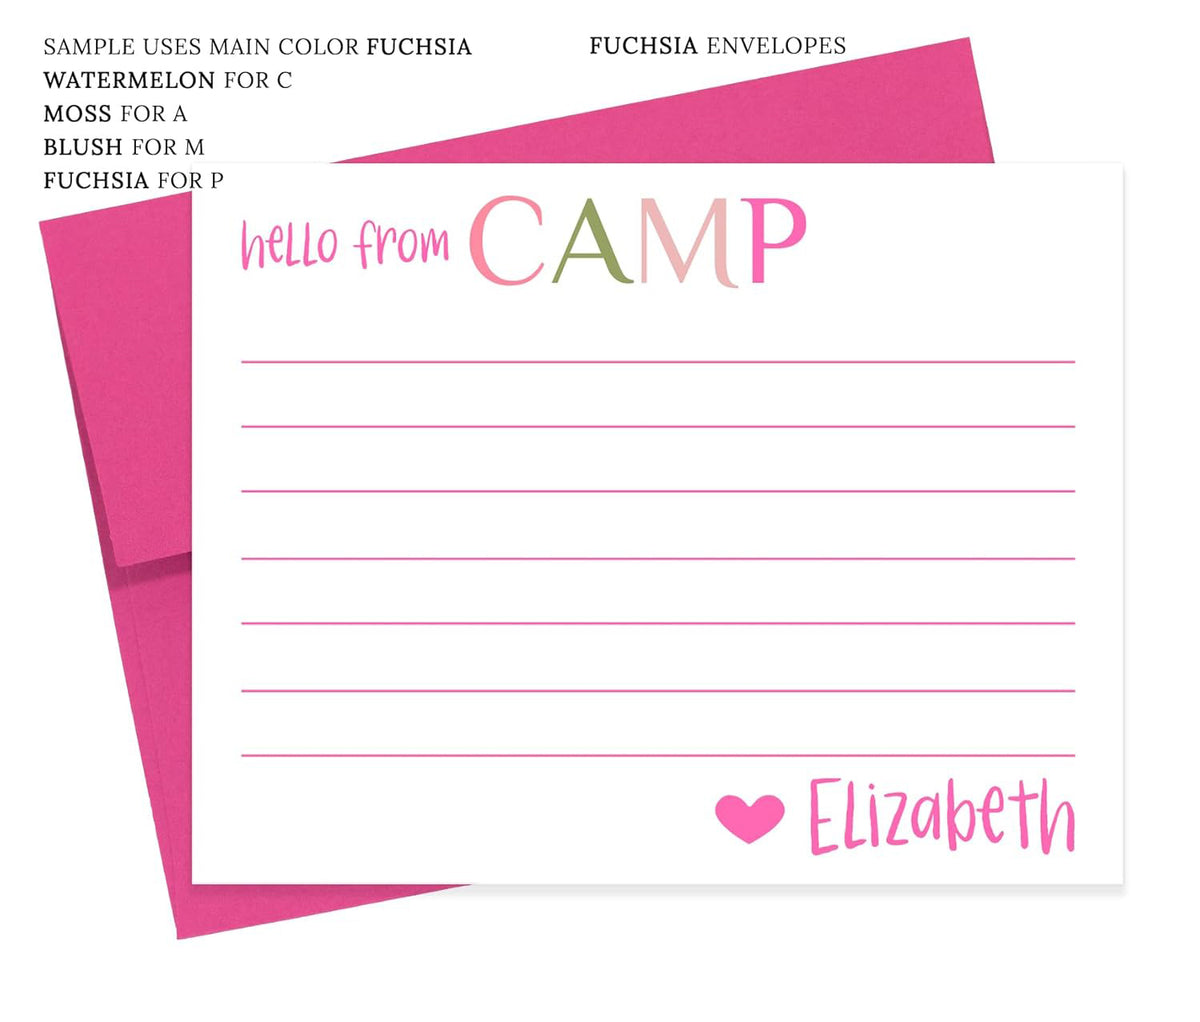 SAMPLE USES MAIN COLOR FUCHSIA
WATERMELON FOR C
MOSS FOR A
BLUSH FOR M
FUCHSIA FOR P
FUCHSIA ENVELOPES
hello from CAMP
Elizabeth